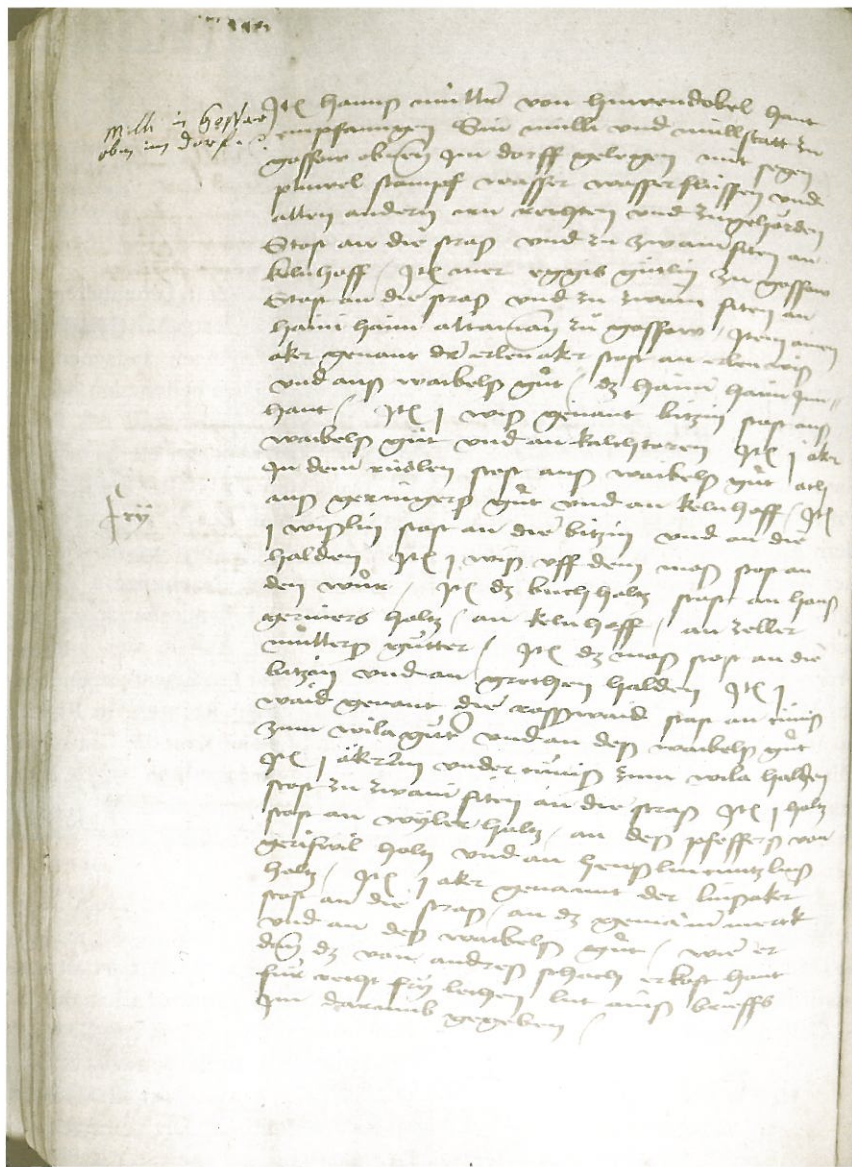 Milli in Gossow
oben im dorf
Itē hanns müller von hinendobel haut
empfanngen Sin mülli und müllstatt zu
gossow obnen Im dorff gelegen mit segen
stampf wasser wasserflüssen und
allen andern iren rechten und zugehörden
Stost an die strass und zu zwain siten an
kelnhoff / Itē mer eggis gütlin zu gossow
Stost an die strass und zu zwain siten an
haini haini altaman zu gossow / Item ainen
aker genant der erlenaker stost an erlenwiß
und anß waibelß gůt / dz haini haini Inn
haut / Itē j wiß genant bitzin stost anß
waibelß gůt und an kilchtoren Itē j aker
In dem rüdlen stost anß waibelß gůt
anß geringerß gůt und an kelnhoff / Itē
fry
j wißlin stost an die bitzin und an die
halden Itē j wiß uff dem moß stost an
den wůr / Itē dz buchholtz stost an hanß
gerivers holtz / an kelnhoff / an zeller
müllerß gütter / Itē dz moß stost an die
bitzin und an grethen halden Itē j
waid genant die rosswaid stost an
zum wila gůt und an deß waibelß gůt
Itē j äkerlin under zum wila halden
stost zu zwain siten an die straß Itē j holtz
stost an wyler holtz / an deß pfefferß von
geriswil holtz und an
holtz / Itē j aker genannt der linsaker
stost an die straß / an dz gemain merk
und an deß waibelß gůt / wie er
denn dz von andreß schach erkoft haut
für recht fry lechen lut ainß brieffs
Im darumb gegeben /